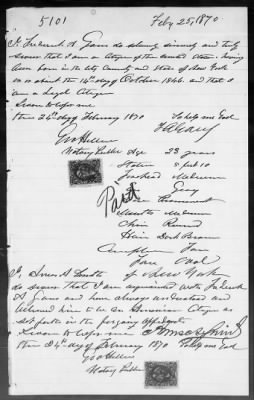 5101
Feby 25, 1870
I, Frederick A. Gans do solemnly sincerely and truly
swear that I am a Citizen of the United States. having
been born in the City County and State of New York
on the 14th day of October 1846. and that I
am a Legal Citizen
Sworn to before me
this 24th day of February 1870 So help me God
Geo Hillen
Notary Public Age 23 years
Stature 5 feet 10
Paid
Forehead Medium
Eyes Gray
Nose Prominent
Mouth Medium
Chin Round
Hair Dark Brown
Complexion Fair
Face Oval
of New York
do swear that I am acquainted with Frederick
A Gans and have always understood and
believed him to be an American Citizen as
set forth in the foregoing Affidavit
Sworn to before me
this 24th day of February 1870 So help me God
Geo Hillen
Notary Public